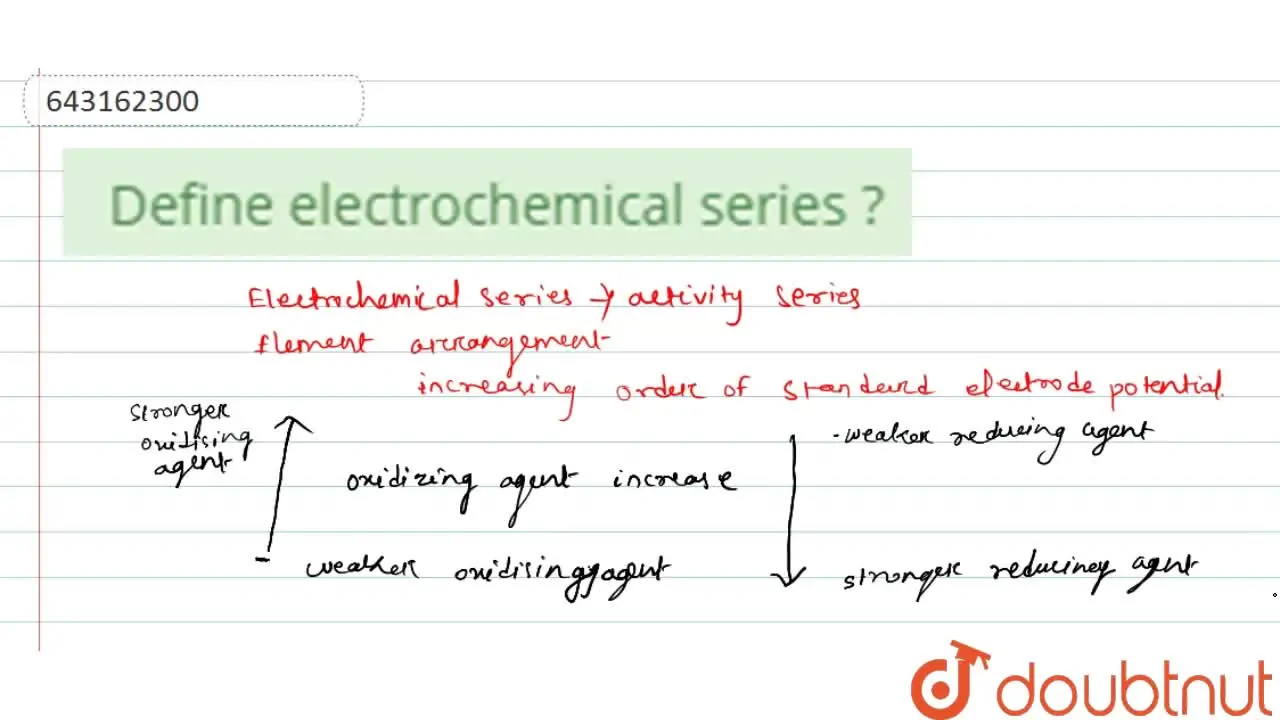 643162300
Define electrochemical series ?
Electrochemical series → activity series
Element arrangement
increasing order of standard electrode potential.
stronger
oxidising
agent
- weaker reducing agent
oxidizing agent increase
weaker oxidising agent
stronger reducing agent
doubtnut